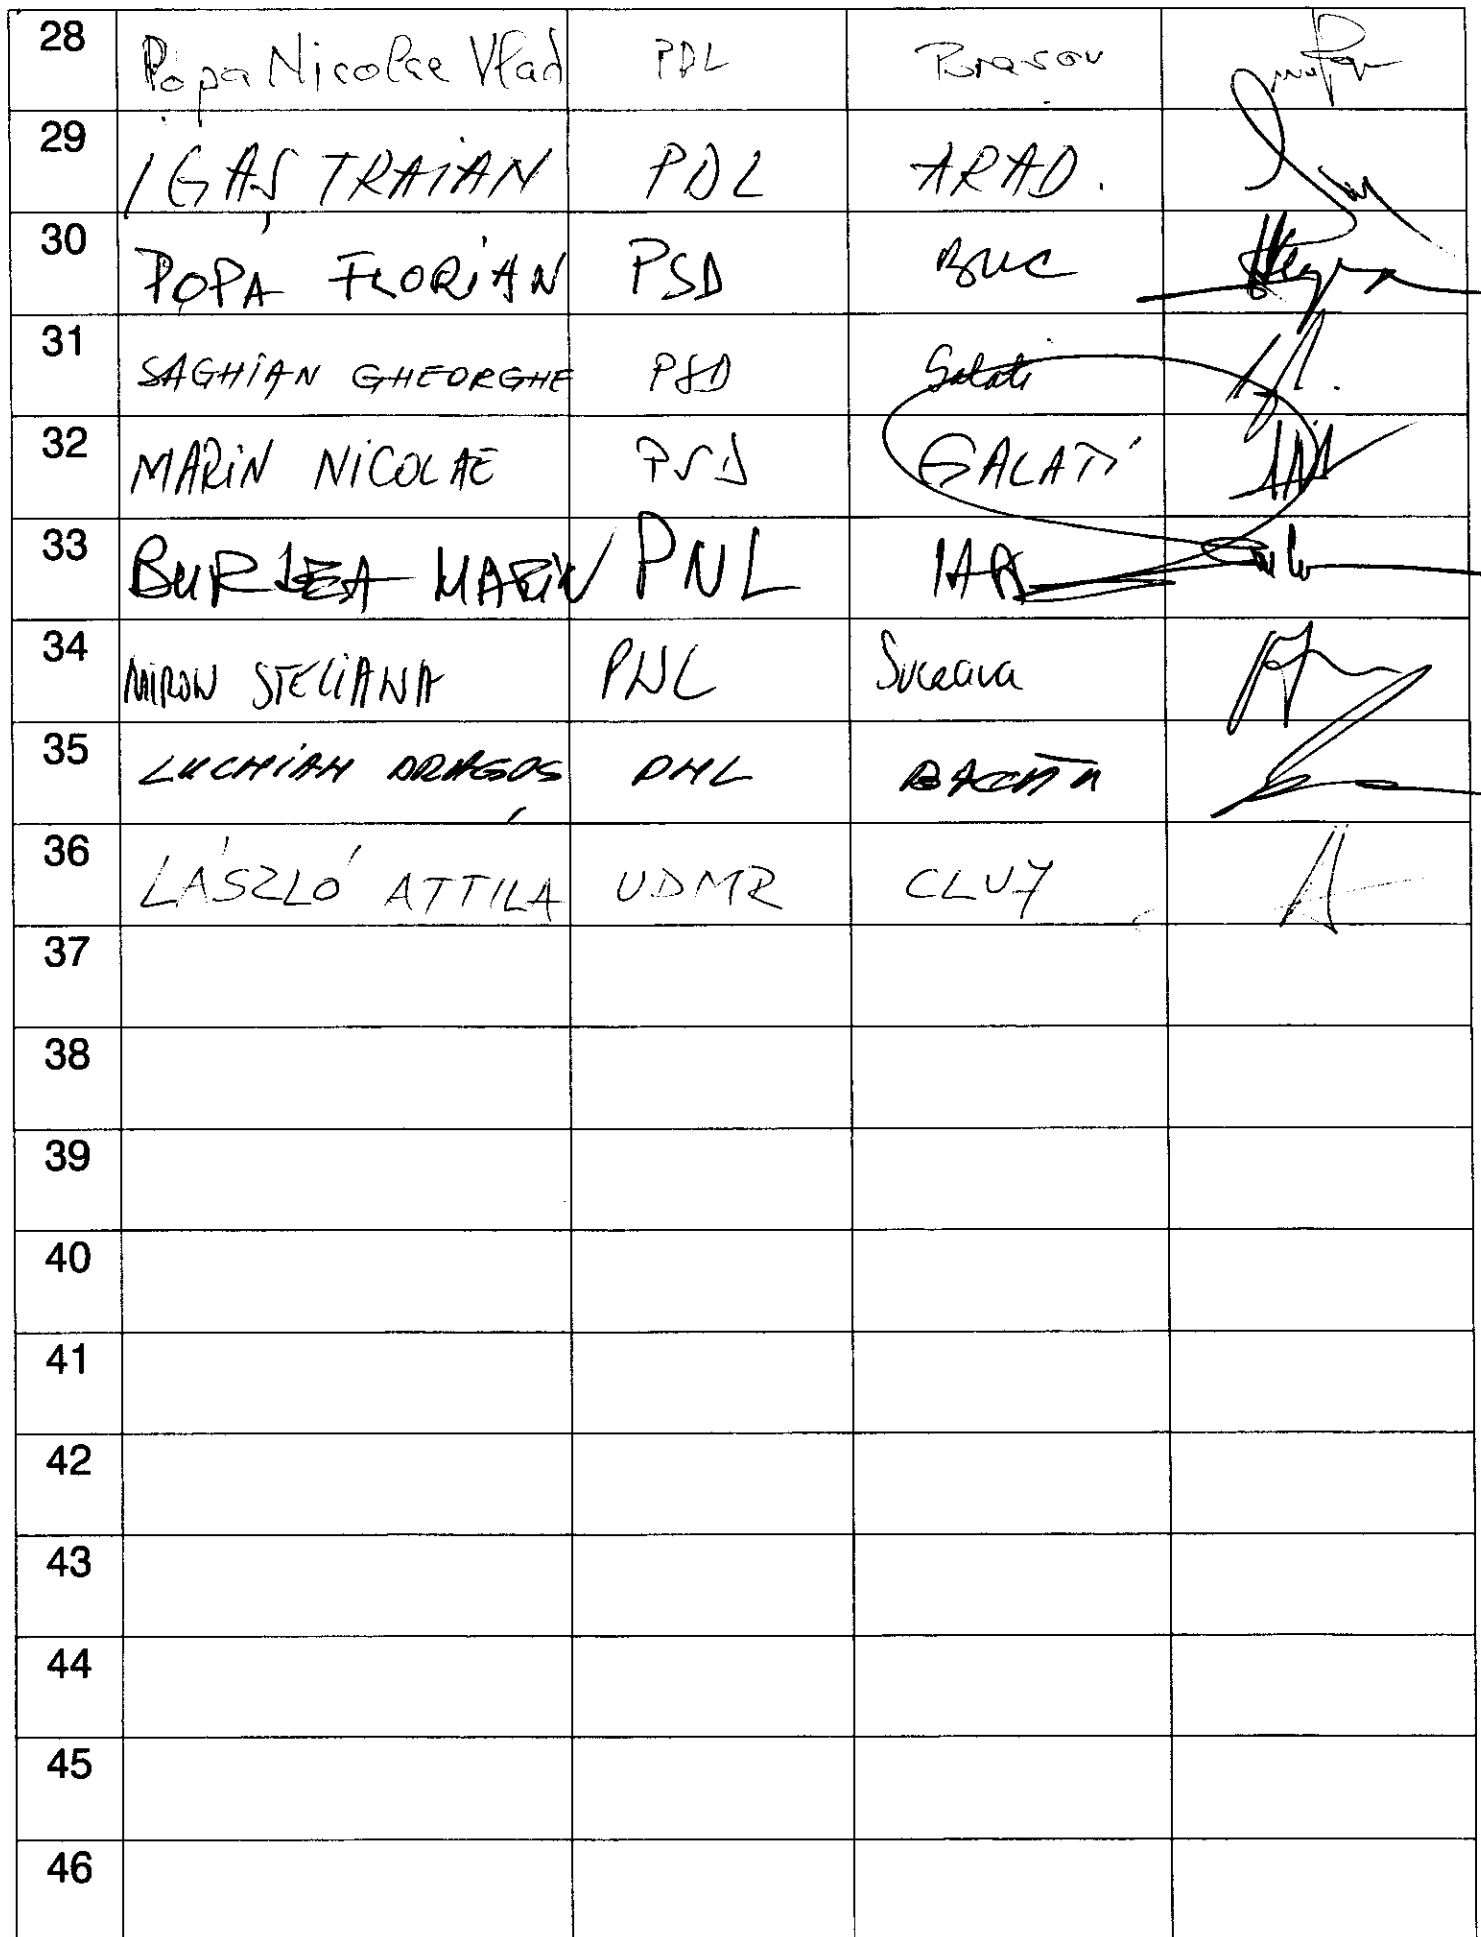 28 Popa Nicolae Vlad PDL Brasov
29 IGAȘ TRAIAN PDL ARAD.
30 POPA FLORIAN PSD BUC
31 SAGHIAN GHEORGHE PSD Galati
32 MARIN NICOLAE PSD GALATI
33 BURLEA MARIN PNL
34 MIRON STELIANA PNL Suceava
35 LUCHIAN DRAGOȘ PNL BACĂU
36 LÁSZLÓ ATTILA UDMR CLUJ
37
38
39
40
41
42
43
44
45
46